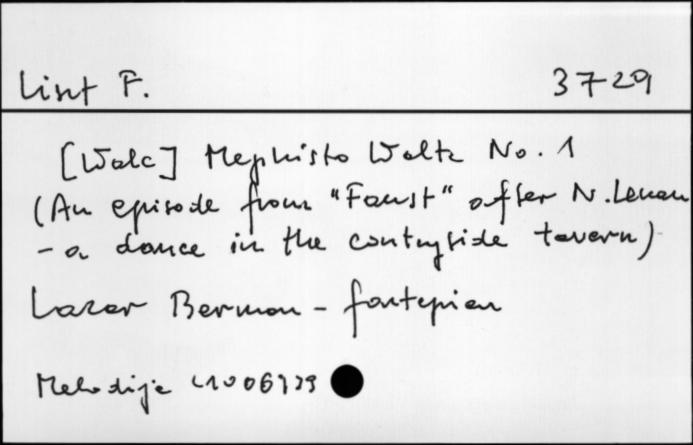 Liszt F. 3729
[Walc] Mephisto Waltz No. 1
(An episode from "Faust" after N. Lenau
- a dance in the contryside tavern)
Lazar Berman - fortepian
Melodija